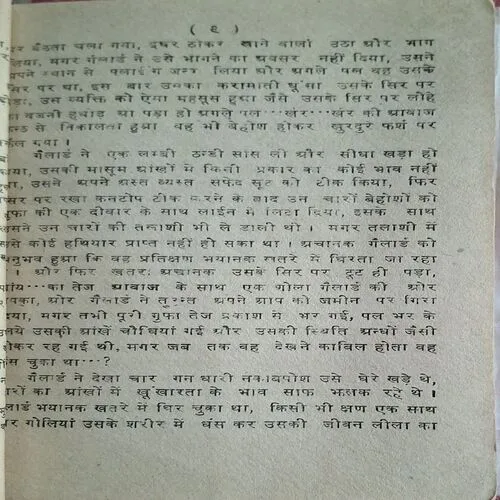 ( ६ )
बैठता चला गया, इधर ठोकर खाने वाला उठा और भाग
लिया, मगर गैलार्ड ने उसे भागने का अवसर नहीं दिया, उसने
अपने स्थान से फ्लाईंग जम्प लिया और अगले पल वह उसके
सिर पर था, इस बार उसका करामाती घूंसा उसके सिर पर
पड़ा, उस व्यक्ति को ऐसा महसूस हुआ जैसे उसके सिर पर लोहे
का वजनी हथौड़ा आ पड़ा हो अगले पल···खर्र···खर्र की आवाज
कण्ठ से निकालता हुआ वह भी बेहोश होकर खुरदुरे फर्श पर
फैल गया ।
गैलार्ड ने एक लम्बी ठन्डी सांस ली और सीधा खड़ा हो
गया, उसकी मासूम आंखों में किसी प्रकार का कोई भाव नहीं
था, उसने अपने अस्त व्यस्त सफेद सूट को ठीक किया, फिर
सिर पर रखा कनटोप ठीक करने के बाद उन चारों बेहोशों को
गुफा की एक दीवार के साथ लाईन में लिटा दिया, इसके साथ
उसने उन चारों की तलाशी भी ले डाली थी । मगर तलाशी में
उसे कोई हथियार प्राप्त नहीं हो सका था । अचानक गैलार्ड को
अनुभव हुआ कि वह प्रतिक्षण भयानक खतरे में घिरता जा रहा
। और फिर खतरा अचानक उसके सिर पर टूट ही पड़ा,
धांय···का तेज आवाज के साथ एक शोला गैलार्ड की ओर
लपका, और गैलार्ड ने तुरन्त अपने आप को जमीन पर गिरा
दिया, मगर तभी पूरी गुफा तेज प्रकाश से भर गई, पल भर के
लिये उसकी आंखें चौंधियां गई और उसकी स्थिति अन्धों जैसी
होकर रह गई थी, मगर जब तक वह देखने काबिल होता वह
फंस चुका था···?
गैलार्ड ने देखा चार गन धारी नकाबपोश उसे घेरे खड़े थे,
चारों का आंखों में खूंखारता के भाव साफ झलक रहे थे ।
गैलार्ड भयानक खतरे में घिर चुका था, किसी भी क्षण एक साथ
चार गोलियां उसके शरीर में धंस कर उसकी जीवन लीला का